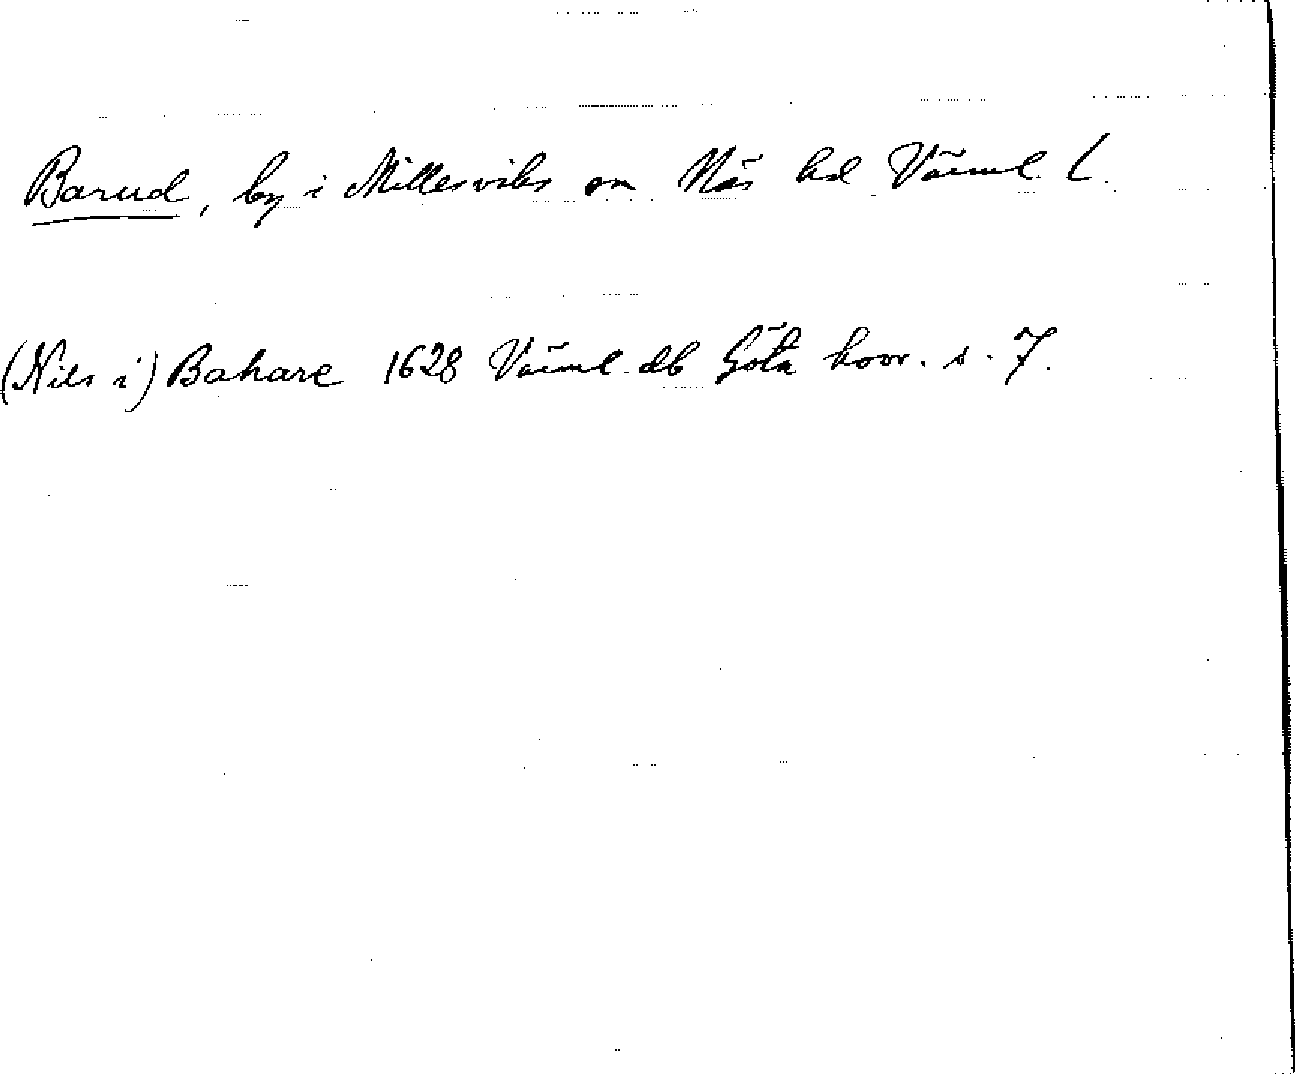 Barud, by i Millesviks sn Näs hd Värml l.
(Nils i) Bahare 1628 Värml. db Göta hovr. s. 7.